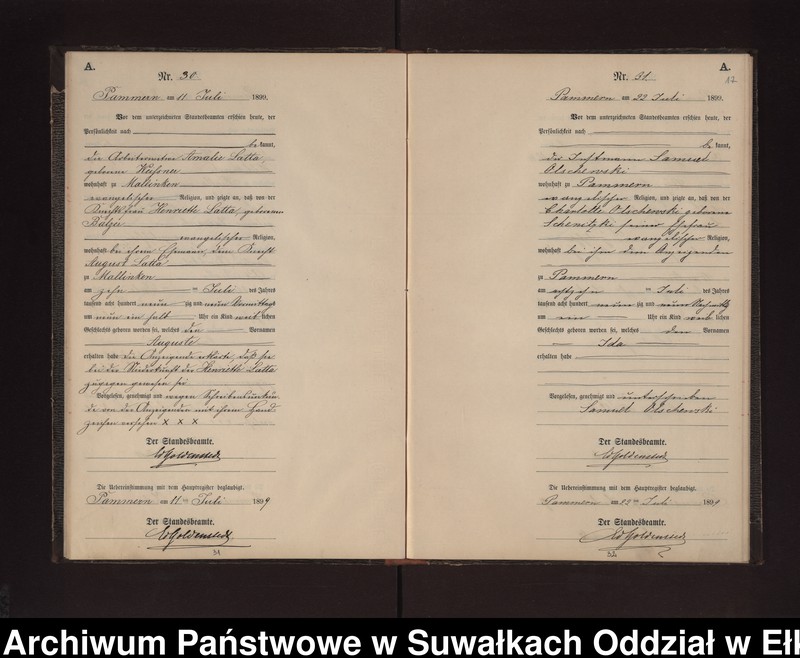 A.
Nr. 30
Pammern am 11 Juli 1899.
Vor dem unterzeichneten Standesbeamten erschien heute, der
Persönlichkeit nach
be kannt,
die Amalie Latta
geborene
wohnhaft zu Mallinken
evangelischer Religion, und zeigte an, daß von der
Henriette Latta, geborenen
evangelischer Religion,
wohnhaft bei ihrem Ehemann, dem Knecht
August Latta
zu Mallinken
am zehn ten Juli des Jahres
tausend acht hundert neun zig und neun Vormittags
um neun ein halb Uhr ein Kind weib lichen
Geschlechts geboren worden sei, welches den Vornamen
Auguste
erhalten habe die Anzeigende erklärte, daß sie
bei der Niederkunft der Henriette Latta
zugegen gewesen sei
Vorgelesen, genehmigt und wegen Schreibensunkun
de von der Anzeigenden mit ihrem Hand
zeichen versehen X X X
Der Standesbeamte.
Die Uebereinstimmung mit dem Hauptregister beglaubigt.
Pammern am 11 ten Juli 1899
Der Standesbeamte.
31
A.
12
Nr. 31
Pammern am 22 Juli 1899.
Vor dem unterzeichneten Standesbeamten erschien heute, der
Persönlichkeit nach
be kannt,
der Instmann Samuel
Olschewski
wohnhaft zu Pammern
evangelischer Religion, und zeigte an, daß von der
Charlotte Olschewski geborene
seiner Ehefrau
evangelischer Religion,
wohnhaft bei ihm dem Anzeigenden
zu Pammern
am achtzehn ten Juli des Jahres
tausend acht hundert neun zig und neun Nachmittags
um ein Uhr ein Kind weib lichen
Geschlechts geboren worden sei, welches den Vornamen
Ida
erhalten habe
Vorgelesen, genehmigt und unterschrieben
Samuel Olschewski
Der Standesbeamte.
Die Uebereinstimmung mit dem Hauptregister beglaubigt.
Pammern am ten Juli 1899
Der Standesbeamte.
32
Archiwum Państwowe w Suwałkach Oddział w Ełk